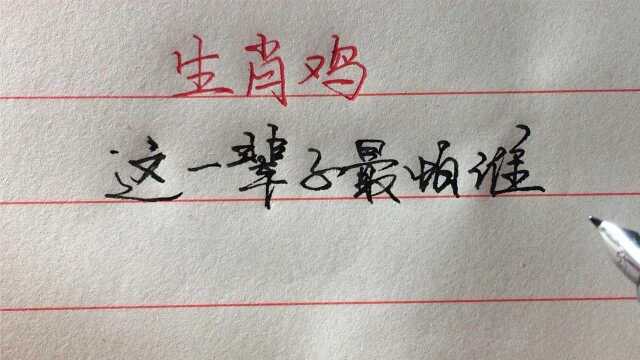 生肖鸡
这一辈子最怕谁